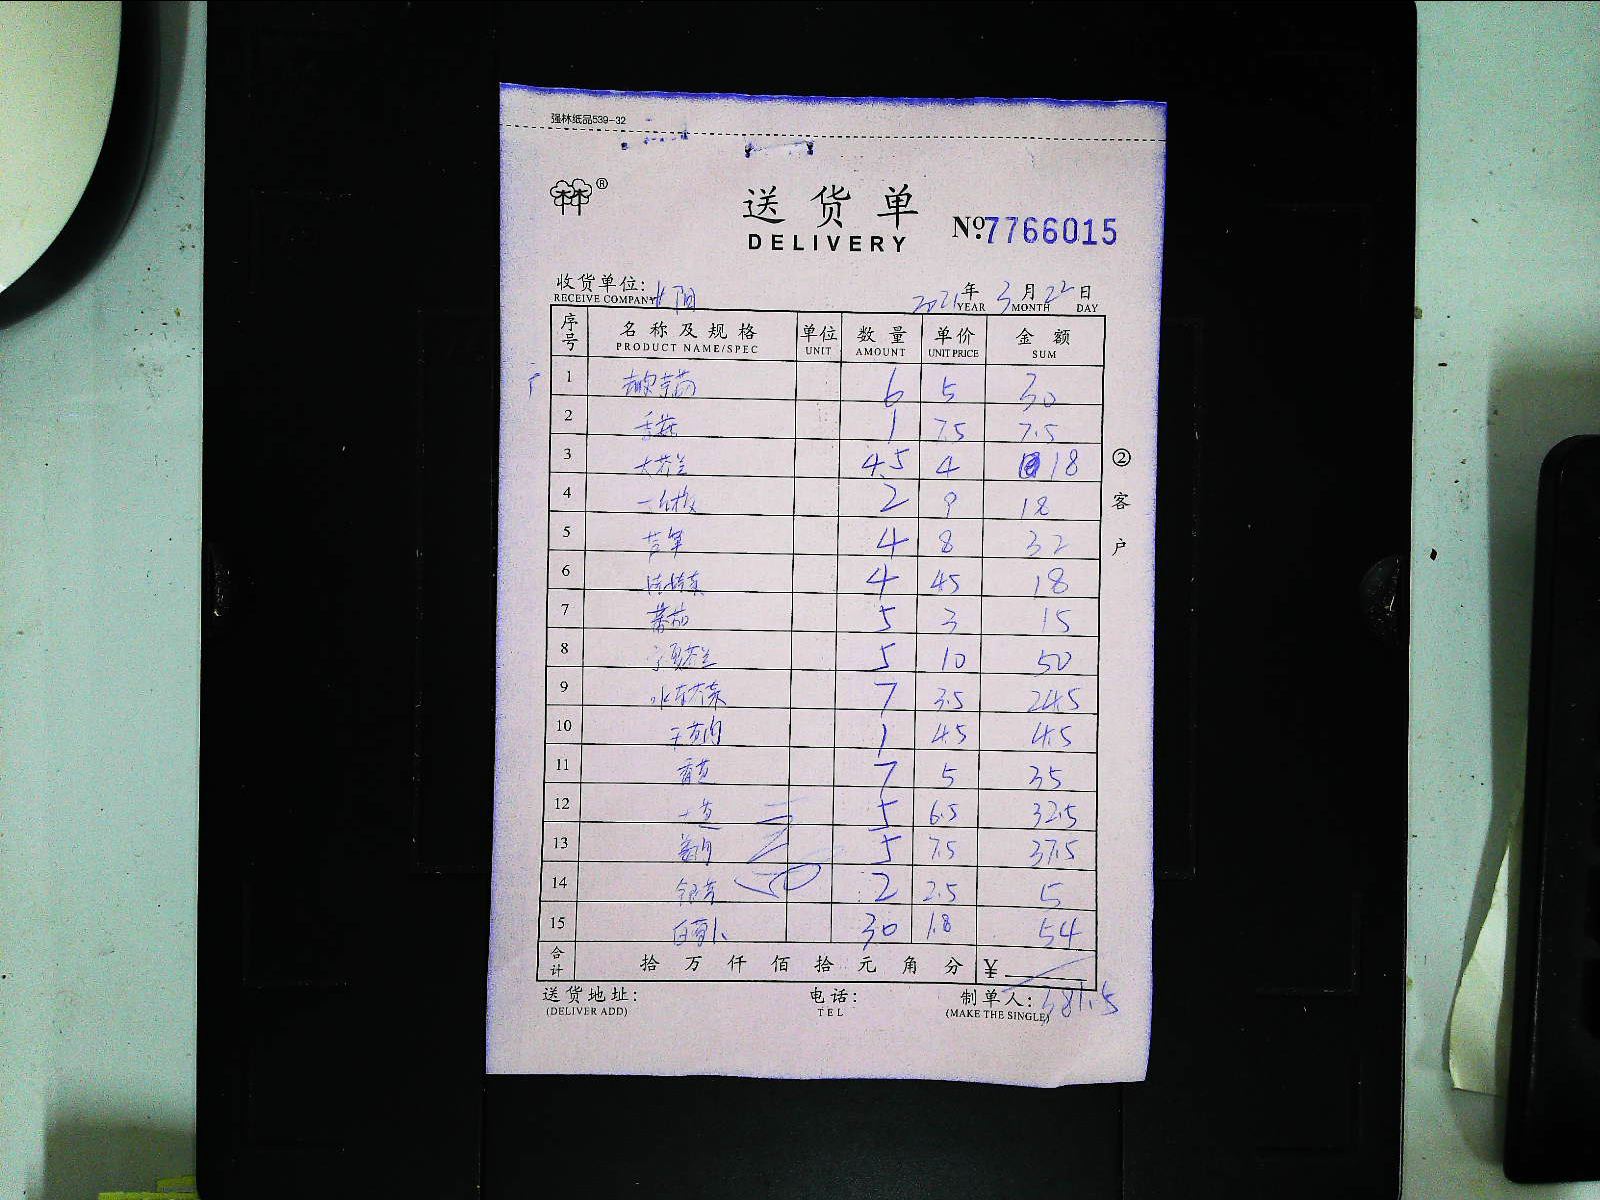 强林纸品539-32
林®
送货单
DELIVERY
№ 7766015
收货单位: 阳 2021年3月22日
RECEIVE COMPANY YEAR MONTH DAY
序号 名称及规格 单位 数量 单价 金额
PRODUCT NAME/SPEC UNIT AMOUNT UNIT PRICE SUM
1 6 5 30
2 香菇 1 7.5 7.5
3 大芥兰 4.5 4 18
4 2 9 18
5 4 8 32
6 4 4.5 18
7 蕃茄 5 3 15
8 宁夏芥兰 5 10 50
9 水东芥菜 7 3.5 24.5
10 干葱肉 1 4.5 4.5
11 香芹 7 5 35
12 5 6.5 32.5
13 姜肉 5 7.5 37.5
14 银芽 2 2.5 5
15 白萝卜 30 1.8 54
合计 拾 万 仟 佰 拾 元 角 分 ¥
381.5
送货地址: 电话: 制单人:
(DELIVER ADD) TEL (MAKE THE SINGLE)
②客户